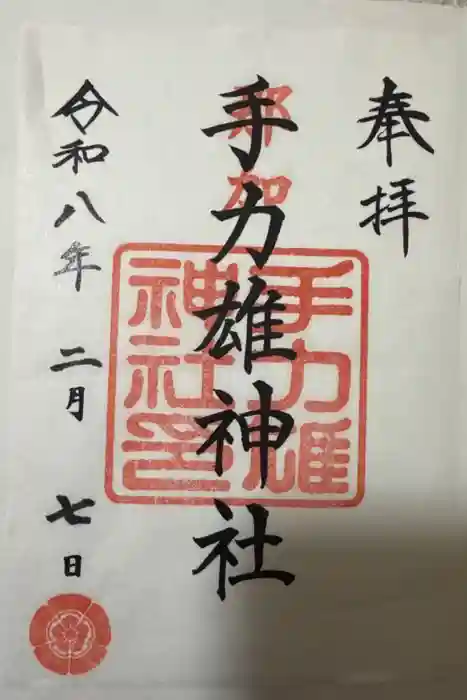 奉拝
那加
手力雄神社
手力雄神社印
令和八年二月七日